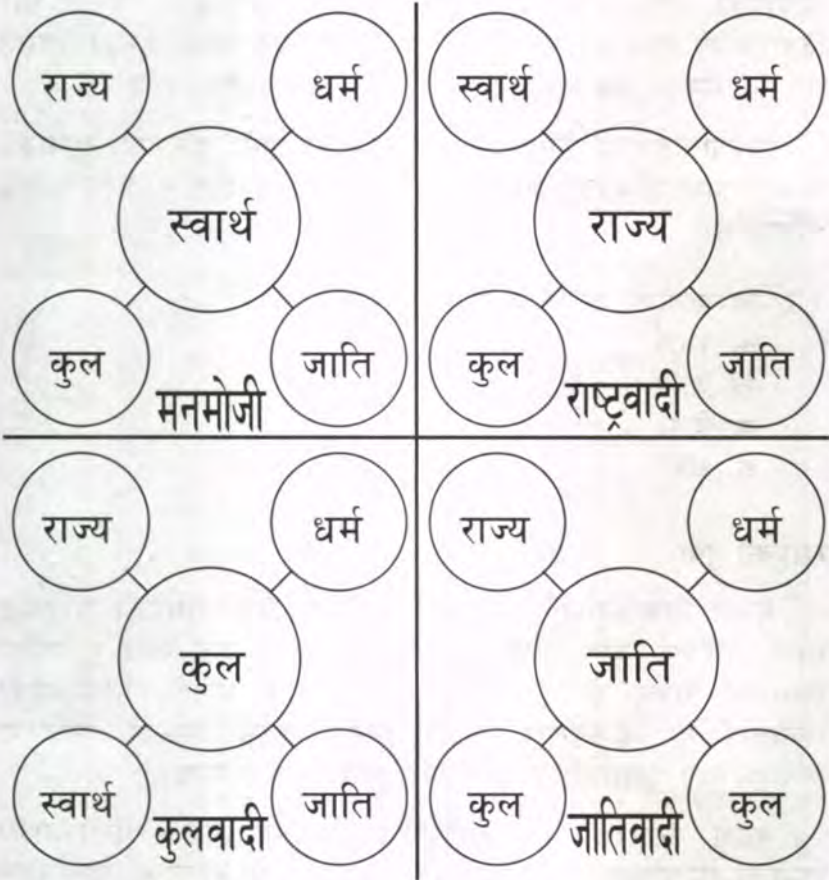 राज्य धर्म
स्वार्थ
कुल जाति
मनमोजी
स्वार्थ धर्म
राज्य
कुल जाति
राष्ट्रवादी
राज्य धर्म
कुल
स्वार्थ जाति
कुलवादी
राज्य धर्म
जाति
कुल कुल
जातिवादी